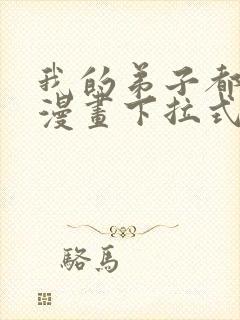 我的弟子都
漫畫下拉式
駱馬